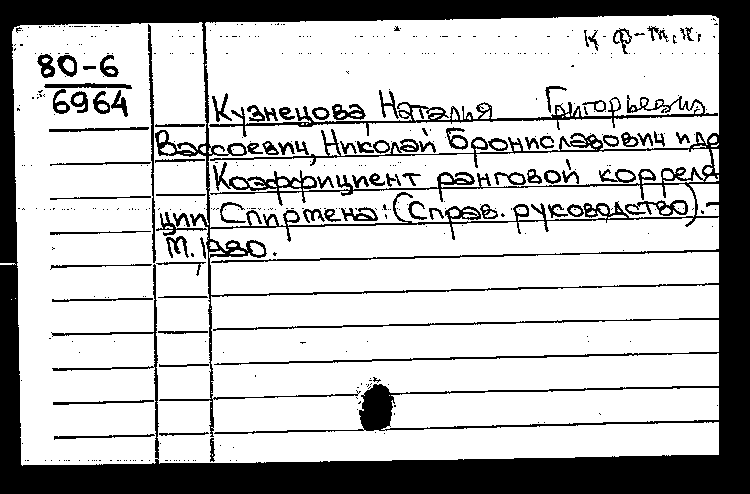 к ф-м.н.
80-6
6964
Кузнецова, Наталья Григорьевна
Вассоевич, Николай Брониславович и др
Коэффициент ранговой корреля
ции Спиртена: (Справ. руководство).-
М., 1980.